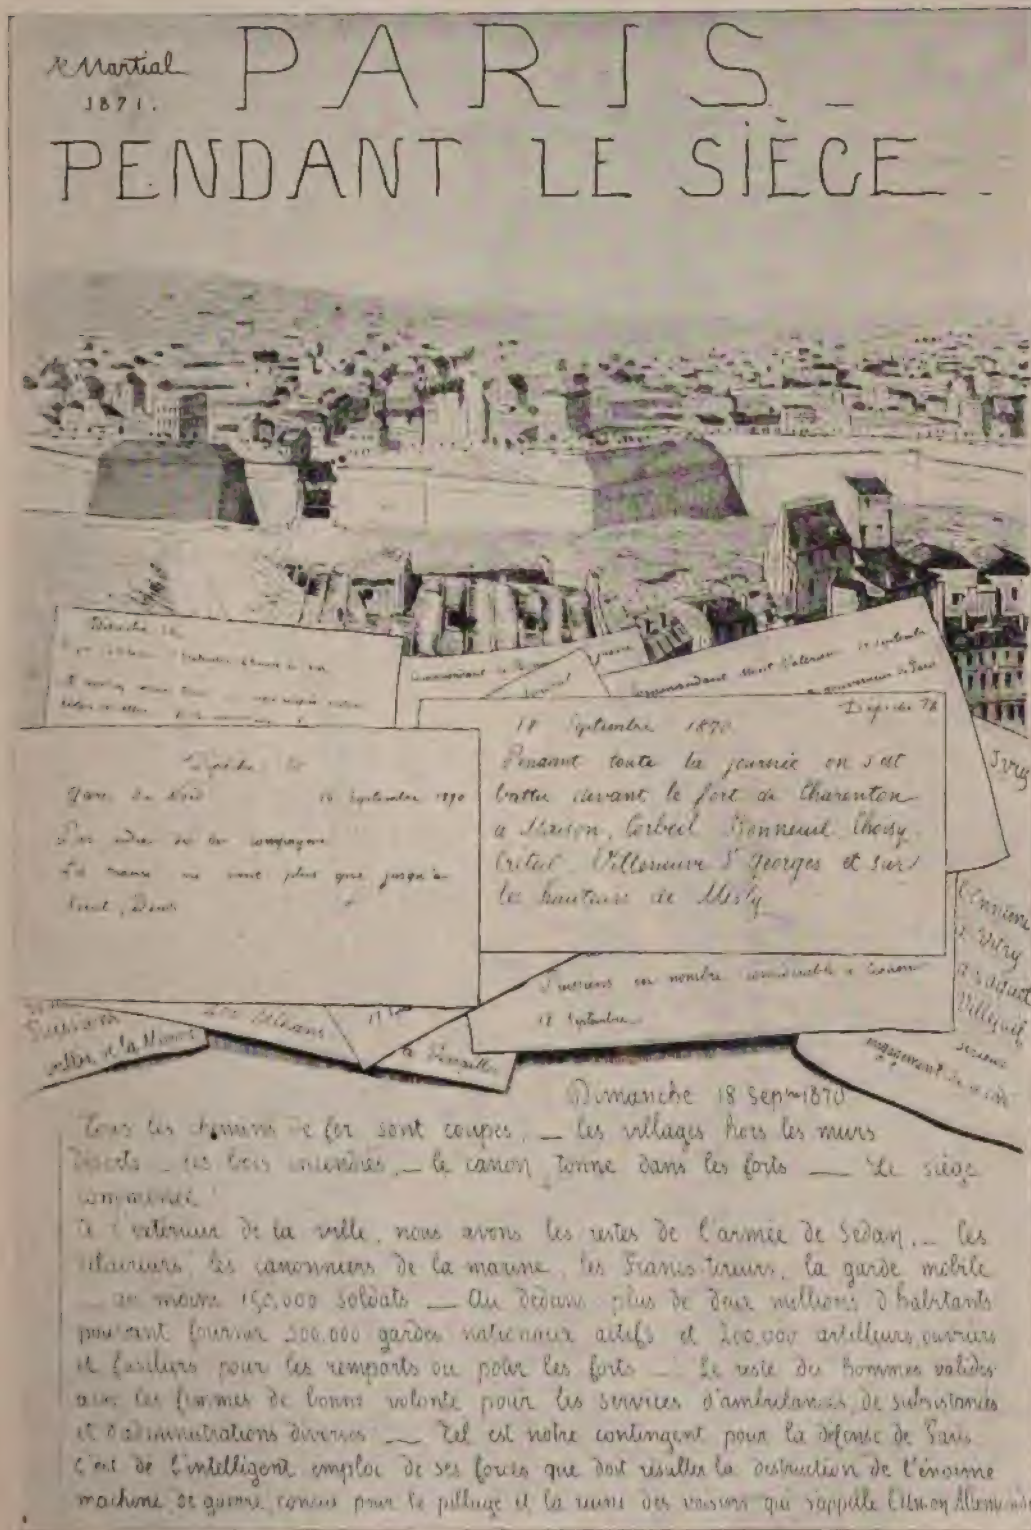 Martial
1871.
PARIS
PENDANT LE SIÈGE
Dépêche
Commandant Mont Valérien septembre
gouverneur de Paris
journal
Dépêche
Gare du Nord 18 septembre 1870
Par ordre de la compagnie
Les trains ne vont plus que jusqu'à
Saint Denis
Dépêche 78
18 Septembre 1870
Pendant toute la journée on s'est
battu devant le fort de Charenton
a Maison, Corbeil Bonneuil Choisy
Créteil Villeneuve St Georges et sur
les hauteurs de Mesly
Ivry
l'ennemi
Vitry
Villejuif
Prussiens en nombre considérable a
18 Septembre
Prussiens
vallée de la Marne
Orléans
a Versailles
sérieux
engagement
Dimanche 18 Sepbre 1870
Tous les chemins de fer sont coupés, — les villages hors les murs
déserts — les bois incendiés, — le canon tonne dans les forts — Le siège
commence!
A l'extérieur de la ville, nous avons les restes de l'armée de Sedan, — les
éclaireurs, les canonniers de la marine, les Francs-tireurs, la garde mobile
— au moins 150,000 soldats — Au dedans plus de deux millions d'habitants
pouvant fournir 300,000 gardes nationaux actifs et 200,000 artilleurs, ouvriers
et fusiliers pour les remparts ou pour les forts — Le reste des hommes valides
avec les femmes de bonne volonté pour les services d'ambulances, de subsistances
et d'administrations diverses — Tel est notre contingent pour la défense de Paris
c'est de l'intelligent emploi de ses forces que doit résulter la destruction de l'énorme
machine de guerre conçue pour le pillage et la ruine des voisins qui s'appelle l'Union